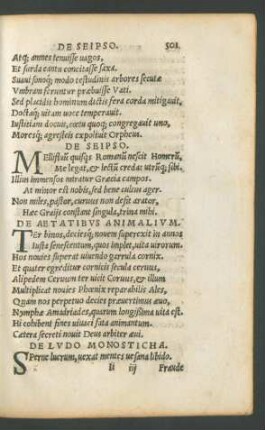 DE SEIPSO. 501
Atq; amnes tenuisse uagos,
Et surda cantu concitasse saxa.
Suaui sonoq; modo testudinis arbores secutæ
Vmbram ferunt præbuisse Vati.
Sed placidis hominum dictis fera corda mitigauit,
Doctaq; uitam uoce temperauit.
Iustitiam docuit, cœtu quoq; congregauit uno,
Moresq; agrestes expoliuit Orpheus.
DE SEIPSO.
MÆllifluũ quisqs Romanũ nescit Homerũ,
Me legat, & lectũ credat utrũq; sibi.
Illius immensos miratur Græcia campos.
At minor est nobis, sed bene cultus ager.
Non miles, pastor, curuus non desit arator,
Hæc Graijs constant singula, trina mihi.
DE AETATIBVS ANIMALIVM.
TEr binos, deciesq; nouem superexit in annos
Iusta senescentum, quos implet, uita uirorum.
Hos nouies superat uiuendo garrula cornix.
Et quater egreditur cornicis secula ceruus,
Alipedem Ceruum ter uicit Coruus, & illum
Multiplicat nouies Phœnix reparabilis Ales,
Quam nos perpetuo decies præuertimus æuo,
Nymphæ Amadriades, quarum longissima uita est.
Hi cohibent fines uiuaci fata animantum.
Cætera secreti nouit Deus arbiter æui.
DE LVDO MONOSTICHA.
SPerne lucrum, uexat mentes uesana libido.
li iij Fraude